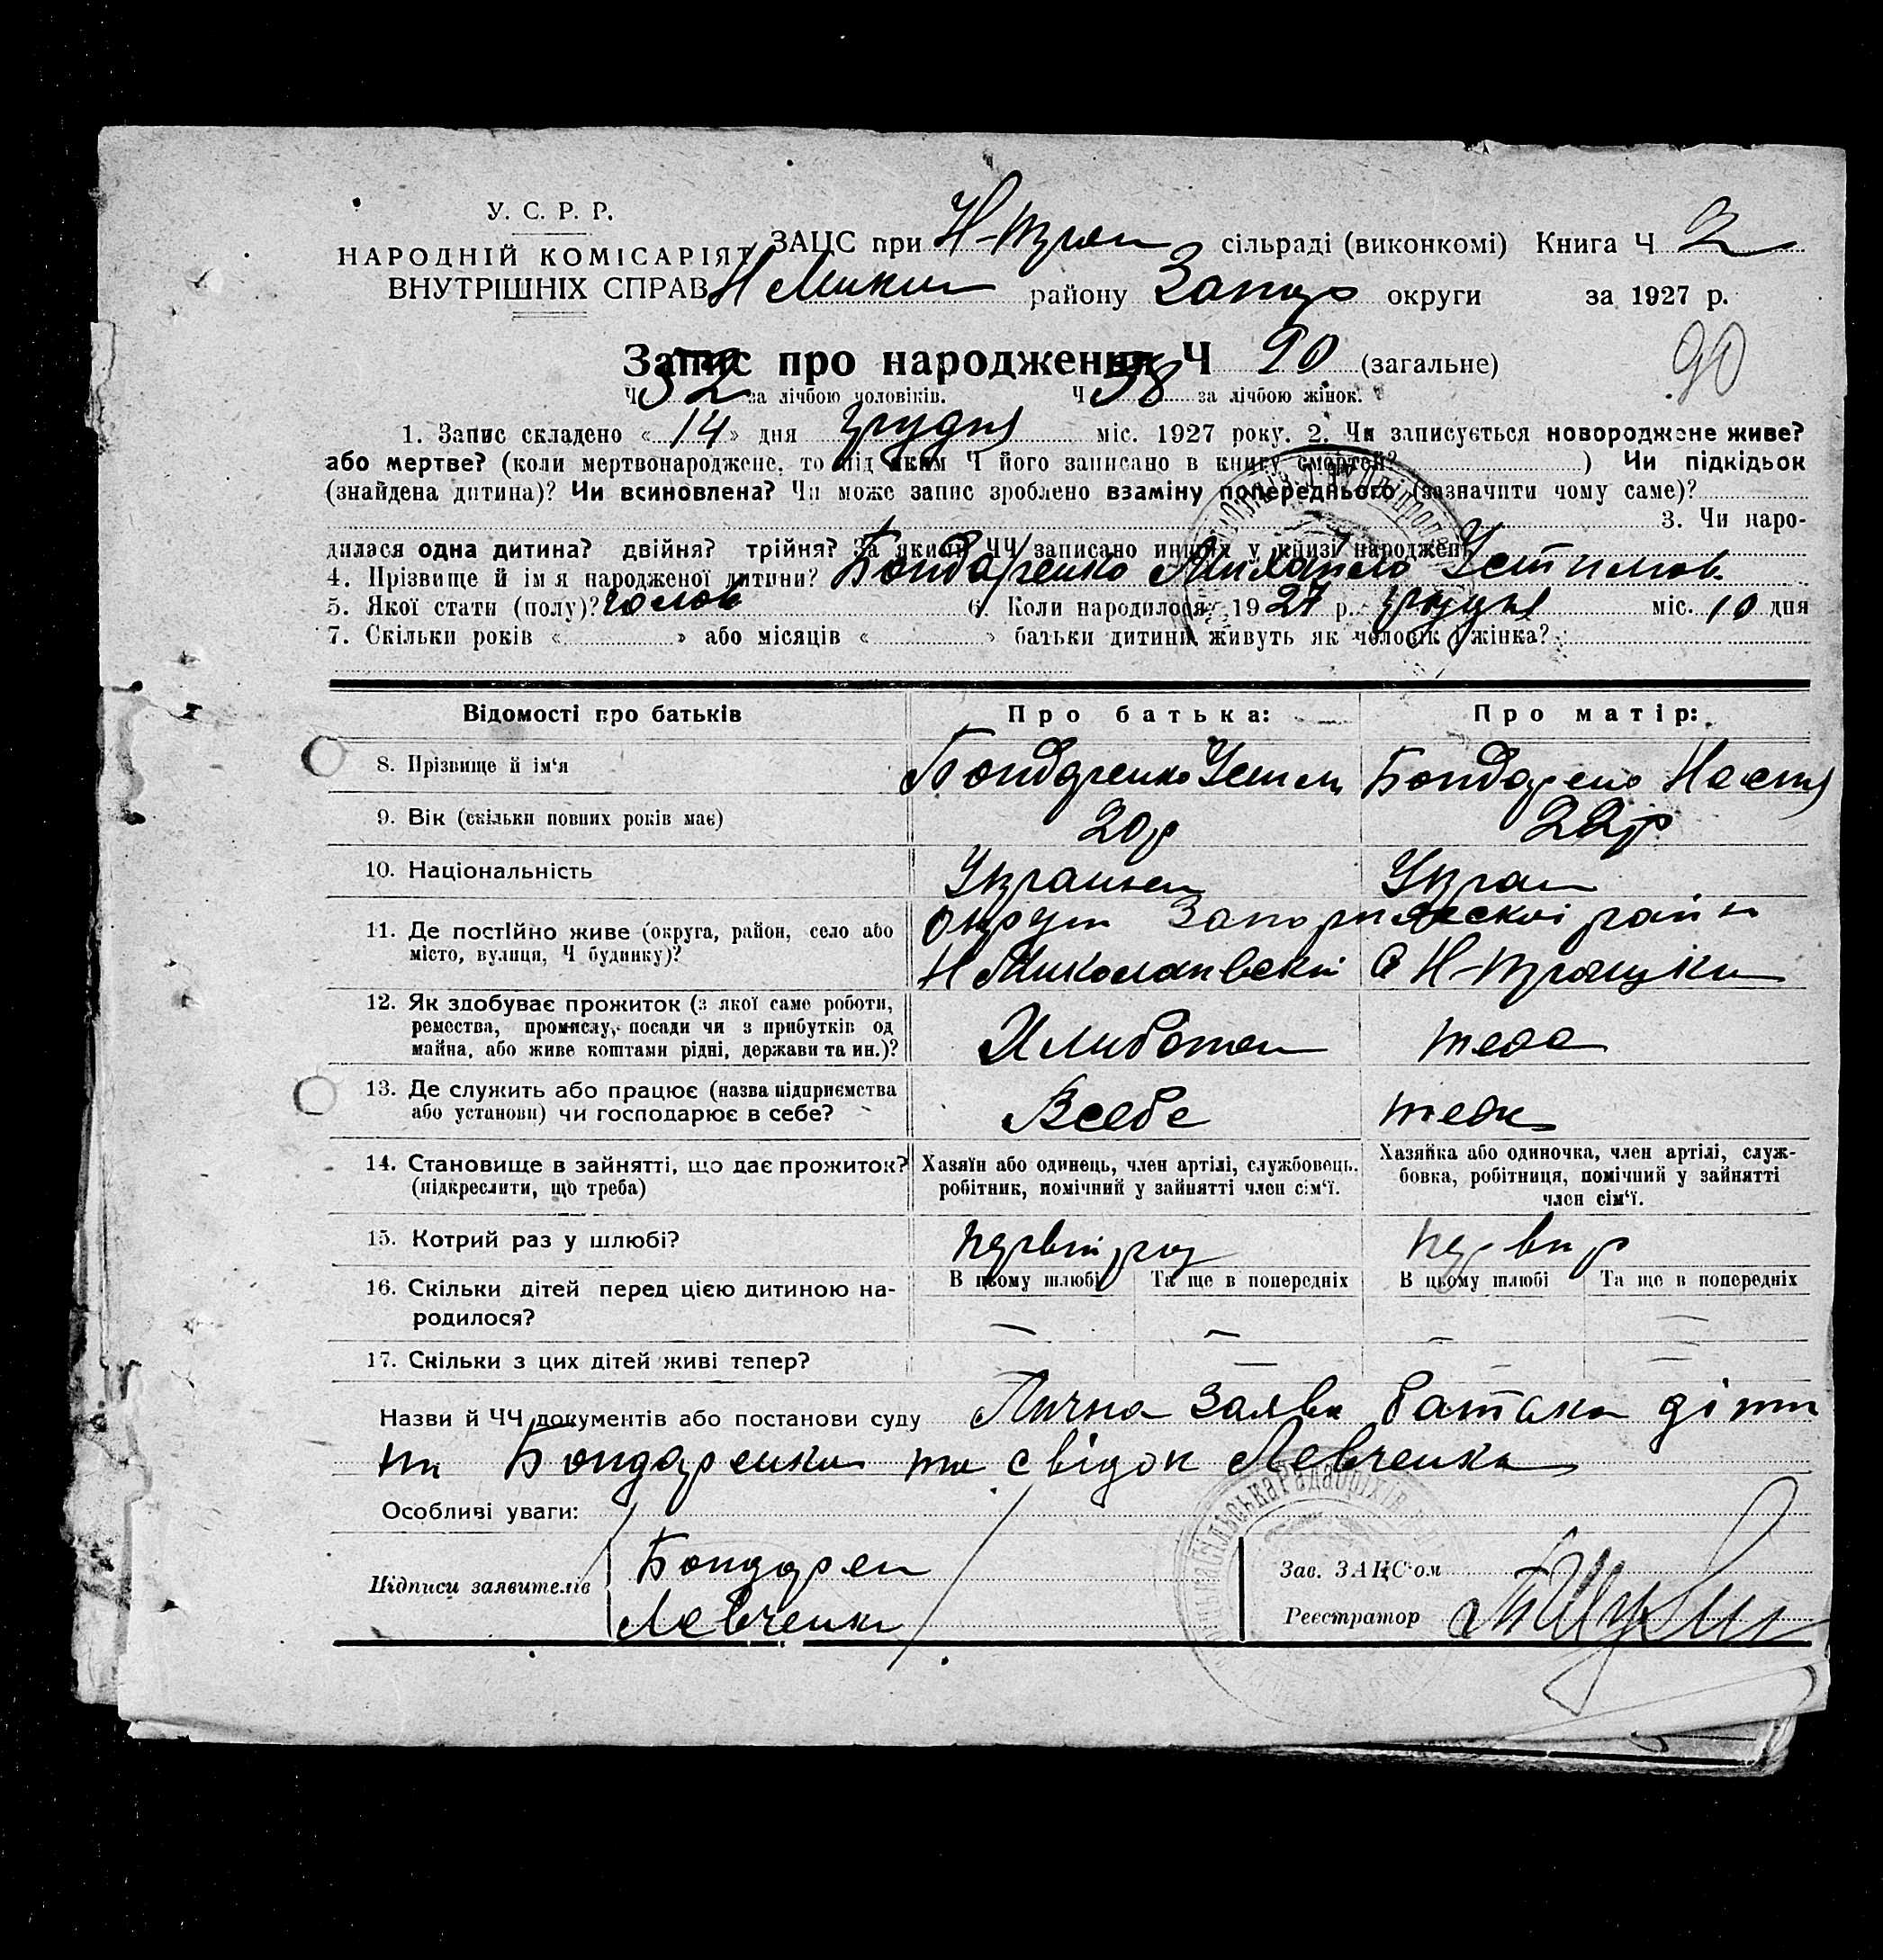 У. С. Р. Р.
НАРОДНІЙ КОМІСАРІЯТ
ВНУТРІШНІХ СПРАВ
ЗАЦС при сільраді (виконкомі) Книга Ч 2
району Запор округи за 1927 р.
Запис про народження Ч 90 (загальне)
90
Ч 32 за лічбою чоловіків. Ч 58 за лічбою жінок.
1. Запис складено «14» дня грудня міс. 1927 року. 2. Чи записується новороджене живе?
або мертве? (коли мертвонароджене, то під яким Ч його записано в книгу смертей? ) Чи підкідьок
(знайдена дитина)? Чи всиновлена? Чи може запис зроблено взаміну попереднього (зазначити чому саме)?
3. Чи наро-
дилася одна дитина? двійня? трійня? За якими ЧЧ записано инших у книзі народжень
4. Прізвище й ім'я народженої дитини? Бондаренко Михайло Устимов.
5. Якої стати (полу)? чолов 6. Коли народилося 1927 р. грудня міс. 10 дня
7. Скільки років « » або місяців « » батьки дитини живуть як чоловік і жінка?
Відомості про батьків Про батька: Про матір:
8. Прізвище й ім'я Бондаренко Устим Бондарено Настя
9. Вік (скільки повних років має) 20 р 22 р
10. Національність Українец Украі
11. Де постійно живе (округа, район, село або місто, вулиця, Ч будинку)?
Округи Запоріжскоі район
Н Миколаівский с Н-
12. Як здобуває прожиток (з якої саме роботи, ремества, промислу, посади чи з прибутків од майна, або живе коштами рідні, держави та ин.)? теж
13. Де служить або працює (назва підприємства або установи) чи господарює в себе? В себе теж
14. Становище в зайнятті, що дає прожиток? (підкреслити, що треба)
Хазяїн або одинець, член артілі, службовець, робітник, помічний у зайнятті член сім'ї.
Хазяйка або одиночка, член артілі, служ-
бовка, робітниця, помічний у зайнятті
член сім'ї.
15. Котрий раз у шлюбі? первий раз перви р
16. Скільки дітей перед цією дитиною на-
родилося?
В цьому шлюбі Та ще в попередніх В цьому шлюбі Та ще в попередніх
— — — —
17. Скільки з цих дітей живі тепер? — — —
Назви й ЧЧ документів або постанови суду Лична заява батька діти
ни Бондаренка та свідок Левченка
Особливі уваги:
Підписи заявителів Бондарен
Левченко
Зав. ЗАЦС'ом
Реєстратор